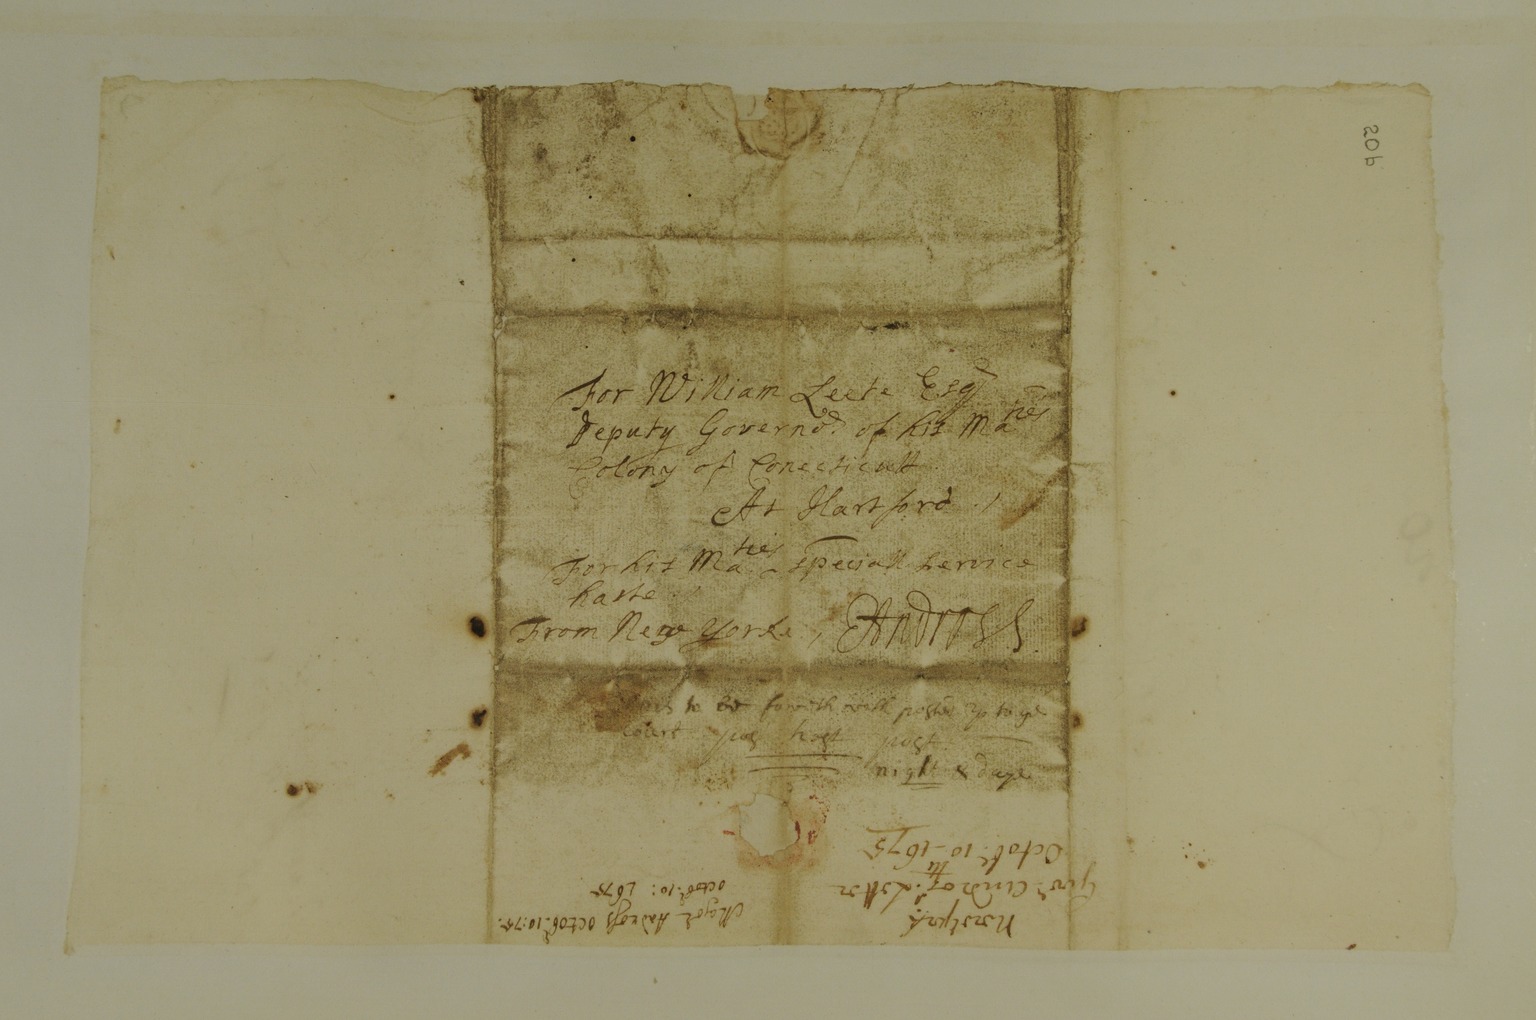 20b
For William Leete Esqr
Deputy Governor. of his Maties
Colony of Conecticutt.
At Hartford ./
For his Maties speciall service
haste.
From New Yorke, EAndross
to be forwith with posted up to ye
Court post hast post
night & daye
Octobr. 10 - 1675
Govr. Andros Letter
Newyork
octobr. 10: 1675
Major Andross octobr. 10: 75.